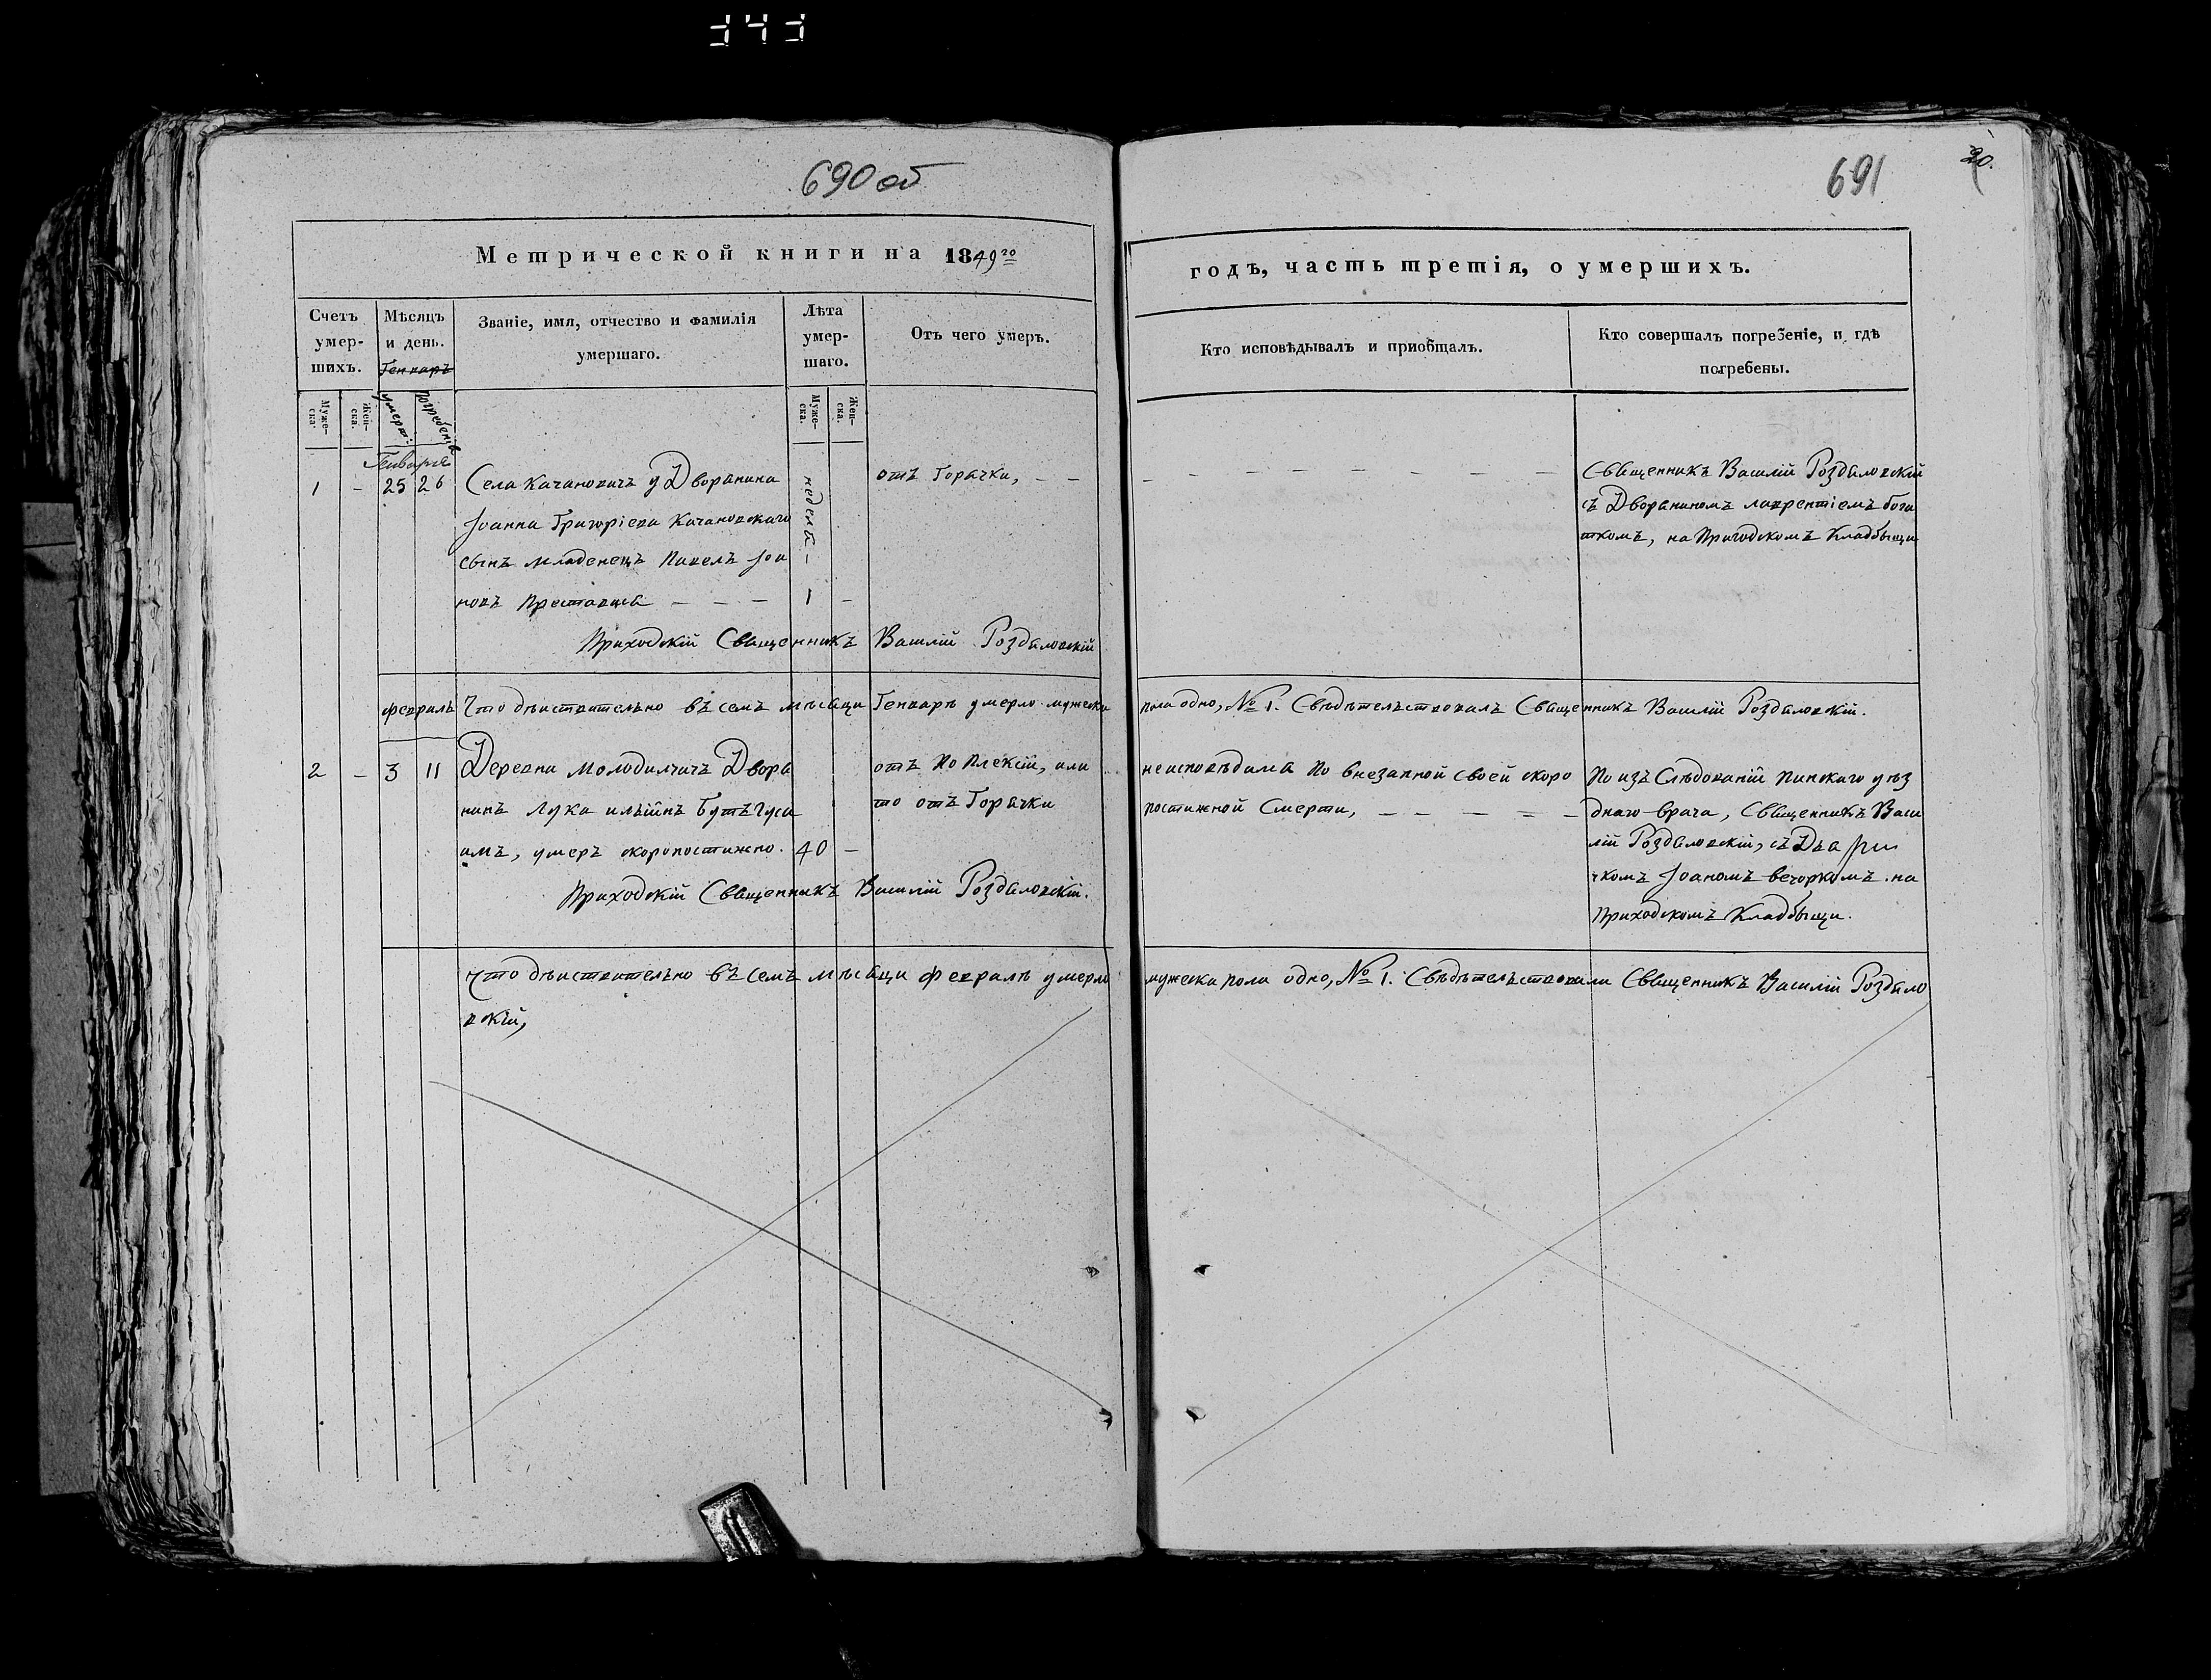 343
690 об
691
20.
Метрической книги на 1849го
годъ, часть третія, о умершихъ.
Счетъ умер-
шихъ.
Мѣсяцъ
и день.
Генваръ
Званіе, имя, отчество и фамилія
умершаго.
Лѣта
умер-
шаго.
Отъ чего умеръ.
Кто исповѣдывалъ и пріобщалъ.
Кто совершалъ погребеніе, и гдѣ
погребены.
Муже-
ска.
Жен-
ска.
умерт:
погребенія
Муже-
ска.
Жен-
ска.
Генваря
1 – 25 26
Села Качановичъ у Дворанина
Іоанна Григоріева Качановскаго
сынъ младенецъ Павелъ Іоа
новъ преставися – – –
неделя –
1 –
отъ Горачки, – –
– – – – – – –
Священникъ Василій Роздяловскій
съ Дворяниномъ лаврентіемъ бога
ткомъ, на Пригодскомъ Кладбыщи
Приходскій Священникъ Василій Роздяловскій
февраль
Что дѣиствительно въ семъ мѣсяци Генваръ умерло мужеска
пола одно, № 1. Свѣдѣтельствовалъ Священникъ Василій Роздяловскій.
2 – 3 11
Деревни Молодилчичъ Дворя
нинъ Лука ильйнъ Бутъгуси
имъ, умеръ скоропостижно. 40 –
отъ Поплексій, или
то отъ Горячки
неисповѣдима по внезапной своей скоро
постижной Смерти, – – – – –
По изъ Слѣдованій пинскаго уѣз
днаго врача, Священникъ Васи
лій Роздяловскій, съ
чкомъ Іоаномъ вечоркомъ на
Приходскомъ Кладбыщи.
Приходскій Священникъ Василій Роздяловскій.
Что дѣиствительно въ семъ мѣсяци февраль умерло
мужеска пола одно, № 1. Свѣдѣтельствовали Священникъ Василій Роздяло
вскій,